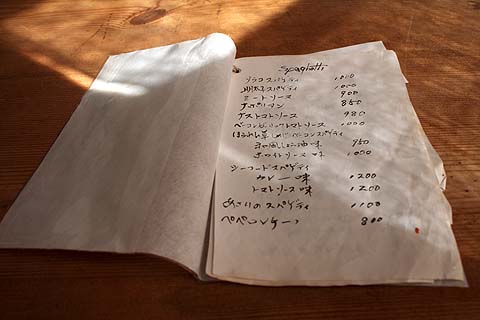 Spaghetti
ソラコスパゲティ 1,000
明太子スパゲティ 1,000
ミートソース 900
ナポリタン 850
ナストマトソース 980
ベーコン トマトソース 1,000
ほうれん草 ベーコンスパゲティ
和風しょう油味 950
ホワイトソース味 1,000
シーフードスパゲティ
カレー味 1200
トマトソース味 1200
あさりのスパゲティ 1100
ペペロンチーノ 800